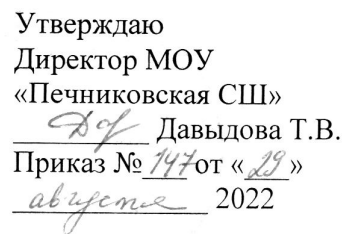 Утверждаю
Директор МОУ
«Печниковская СШ»
Давыдова Т.В.
Приказ № 147 от « 29 »
августа 2022